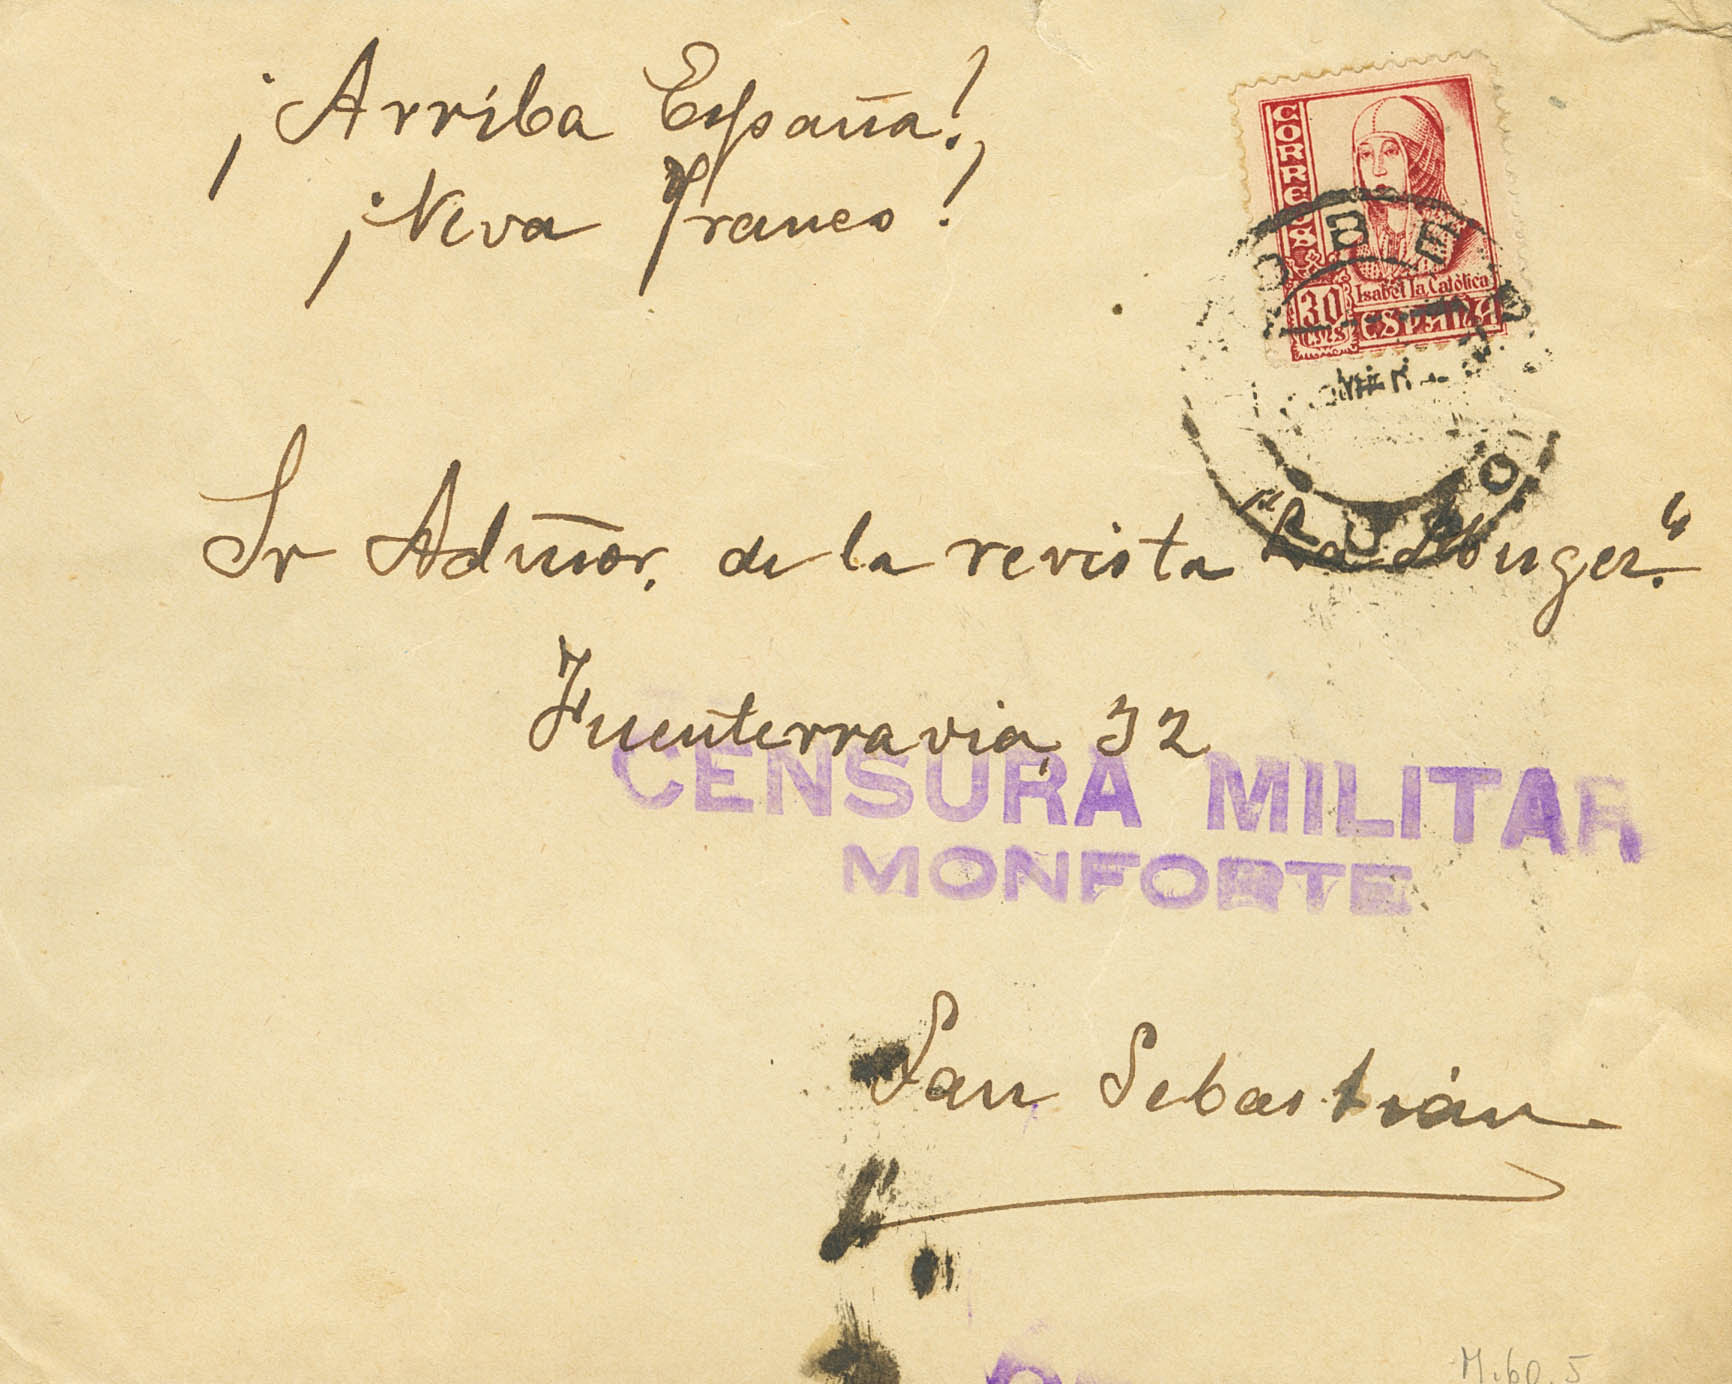 ¡Arriba España!,
¡Viva Franco!
CORREOS
30
CTMS
Isabel la Católica
ESPAÑA
Sr Admor. de la revista "La
Fuenterravia, 32
CENSURA MILITAR
MONFORTE
San Sebastián
M.60.5